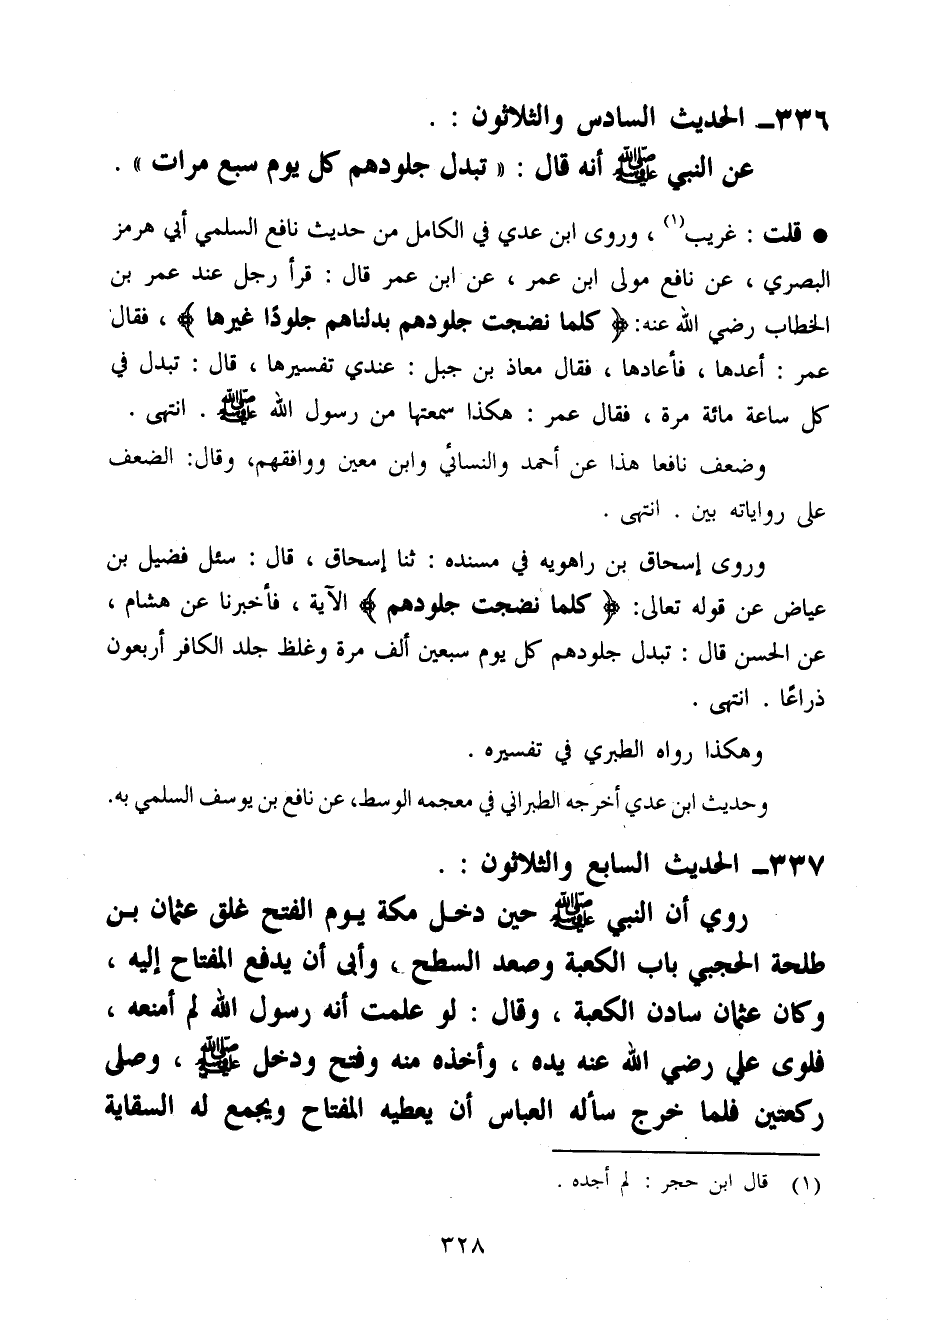 ٣٣٦ـ الحديث السادس والثلاثون : .
عن النبي ﷺ أنه قال : « تبدل جلودهم كل يوم سبع مرات » .
● قلت : غريب(١) ، وروى ابن عدي في الكامل من حديث نافع السلمي أبي هرمز
البصري ، عن نافع مولى ابن عمر ، عن ابن عمر قال : قرأ رجل عند عمر بن
الخطاب رضي الله عنه: ﴿ كلما نضجت جلودهم بدلناهم جلودًا غيرها ﴾ ، فقال
عمر : أعدها ، فأعادها ، فقال معاذ بن جبل : عندي تفسيرها ، قال : تبدل في
كل ساعة مائة مرة ، فقال عمر : هكذا سمعتها من رسول الله ﷺ . انتهى .
وضعف نافعا هذا عن أحمد والنسائي وابن معين ووافقهم، وقال: الضعف
على رواياته بين . انتهى .
وروى إسحاق بن راهويه في مسنده : ثنا إسحاق ، قال : سئل فضيل بن
عياض عن قوله تعالى: ﴿ كلما نضجت جلودهم ﴾ الآية ، فأخبرنا عن هشام ،
عن الحسن قال : تبدل جلودهم كل يوم سبعين ألف مرة وغلظ جلد الكافر أربعون
ذراعًا . انتهى .
وهكذا رواه الطبري في تفسيره .
وحديث ابن عدي أخرجه الطبراني في معجمه الوسط، عن نافع بن يوسف السلمي به.
٣٣٧ـ الحديث السابع والثلاثون : .
روي أن النبي ﷺ حين دخل مكة يوم الفتح غلق عثمان بن
طلحة الحجبي باب الكعبة وصعد السطح ، وأبى أن يدفع المفتاح إليه ،
وكان عثمان سادن الكعبة ، وقال : لو علمت أنه رسول الله لم أمنعه ،
فلوى علي رضي الله عنه يده ، وأخذه منه وفتح ودخل ﷺ ، وصلى
ركعتين فلما خرج سأله العباس أن يعطيه المفتاح ويجمع له السقاية
(١) قال ابن حجر : لم أجده .
٣٢٨